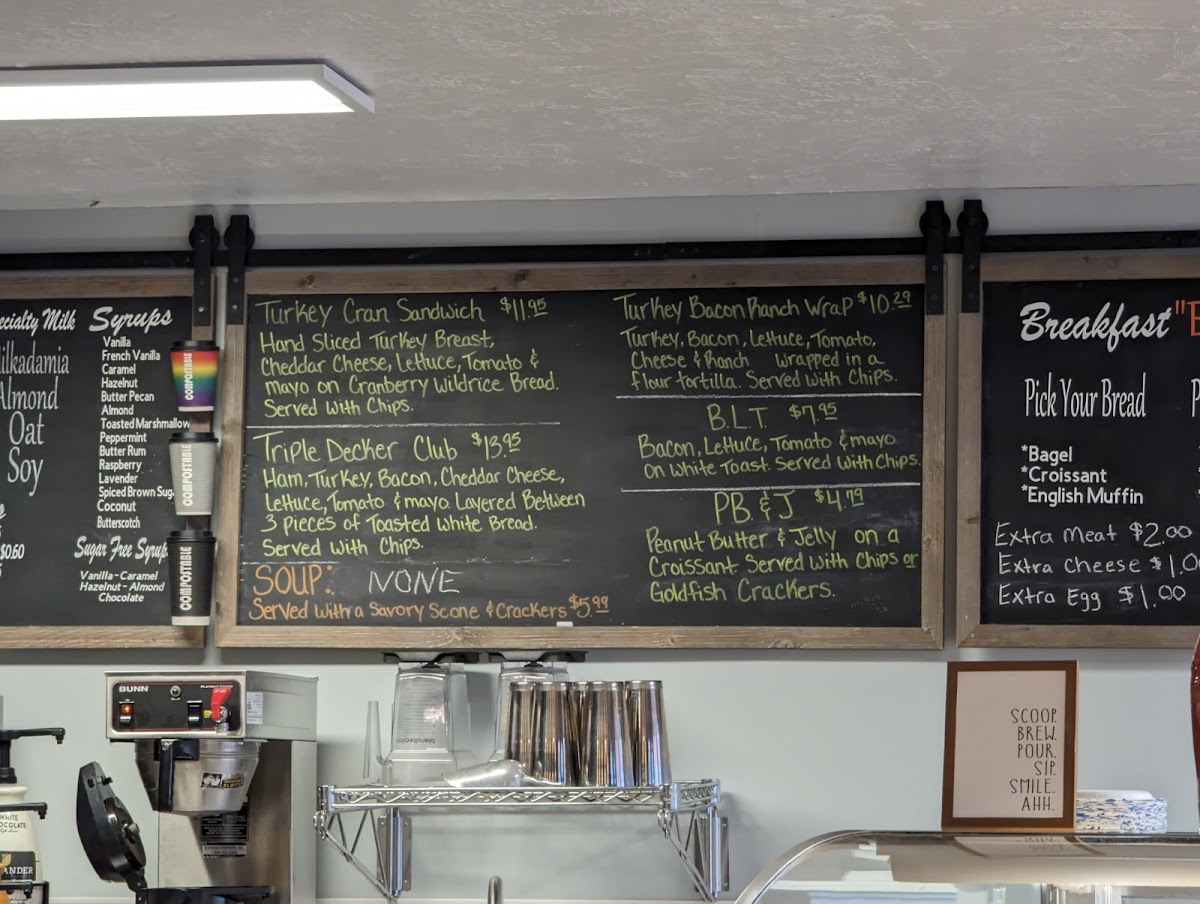 Milk
Syrups
Almond
Oat
Soy
$0.60
Vanilla
French Vanilla
Caramel
Hazelnut
Butter Pecan
Almond
Toasted Marshmallow
Peppermint
Butter Rum
Raspberry
Lavender
Spiced Brown
Coconut
Butterscotch
Sugar Free
Vanilla - Caramel
Hazelnut - Almond
Chocolate
COMPOSTABLE
COMPOSTABLE
COMPOSTABLE
Turkey Cran Sandwich $11.95
Hand Sliced Turkey Breast,
Cheddar Cheese, Lettuce, Tomato &
mayo on Cranberry Wildrice Bread.
Served with Chips.
Triple Decker Club $13.95
Ham, Turkey, Bacon, Cheddar Cheese,
Lettuce, Tomato & mayo. Layered Between
3 pieces of Toasted White Bread.
Served with Chips.
SOUP: NONE
Served with a Savory Scone & Crackers $5.99
Turkey Bacon Ranch Wrap $10.29
Turkey, Bacon, Lettuce, Tomato,
Cheese & Ranch wrapped in a
flour tortilla. Served with Chips.
B.L.T. $7.95
Bacon, Lettuce, Tomato & mayo
on White Toast. Served with Chips.
PB & J $4.79
Peanut Butter & Jelly on a
Croissant Served with Chips or
Goldfish Crackers.
Breakfast
Pick Your Bread
*Bagel
*Croissant
*English Muffin
Extra Meat $2.00
Extra Cheese
Extra Egg $1.00
BUNN
SCOOP.
BREW.
POUR.
SIP.
SMILE.
AHH.